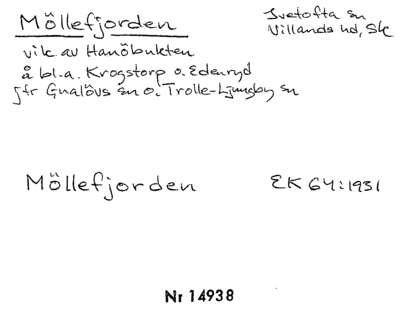 Möllefjorden
Ivetofta sn
Villands hd, Sk
vik av Hanöbukten
å bl.a. Krogstorp o. Edenryd
jfr Gualövs sn o. Trolle-Ljungby sn
Möllefjorden EK 64:1931
Nr 14938